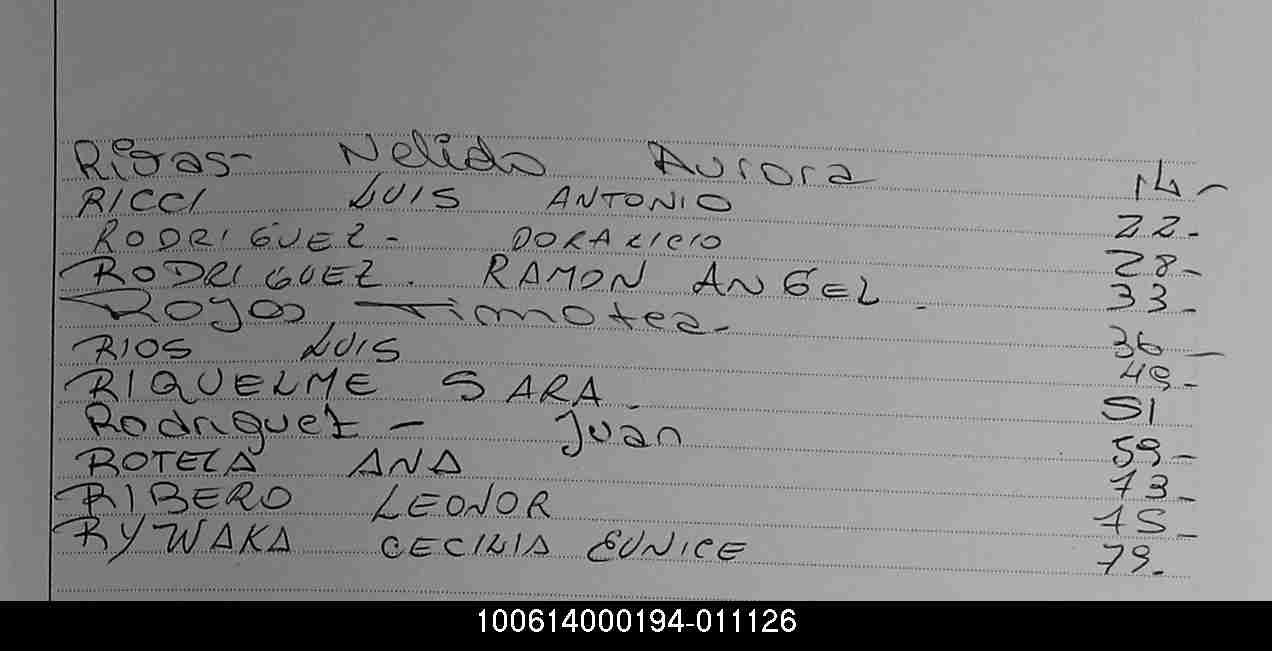 Rivas- Nelida Aurora 14-
RICCI LUIS ANTONIO 22-
RODRIGUEZ- DORALICIO 28-
RODRIGUEZ. RAMON ANGEL. 33-
Rojas Timotea- 36-
RIOS LUIS 49-
RIQUELME SARA 51
Rodriguez - Juan 59-
ROTELA ANA 73-
RIBERO LEONOR 75-
RYWAKA CECILIA EUNICE 79-
100614000194-011126